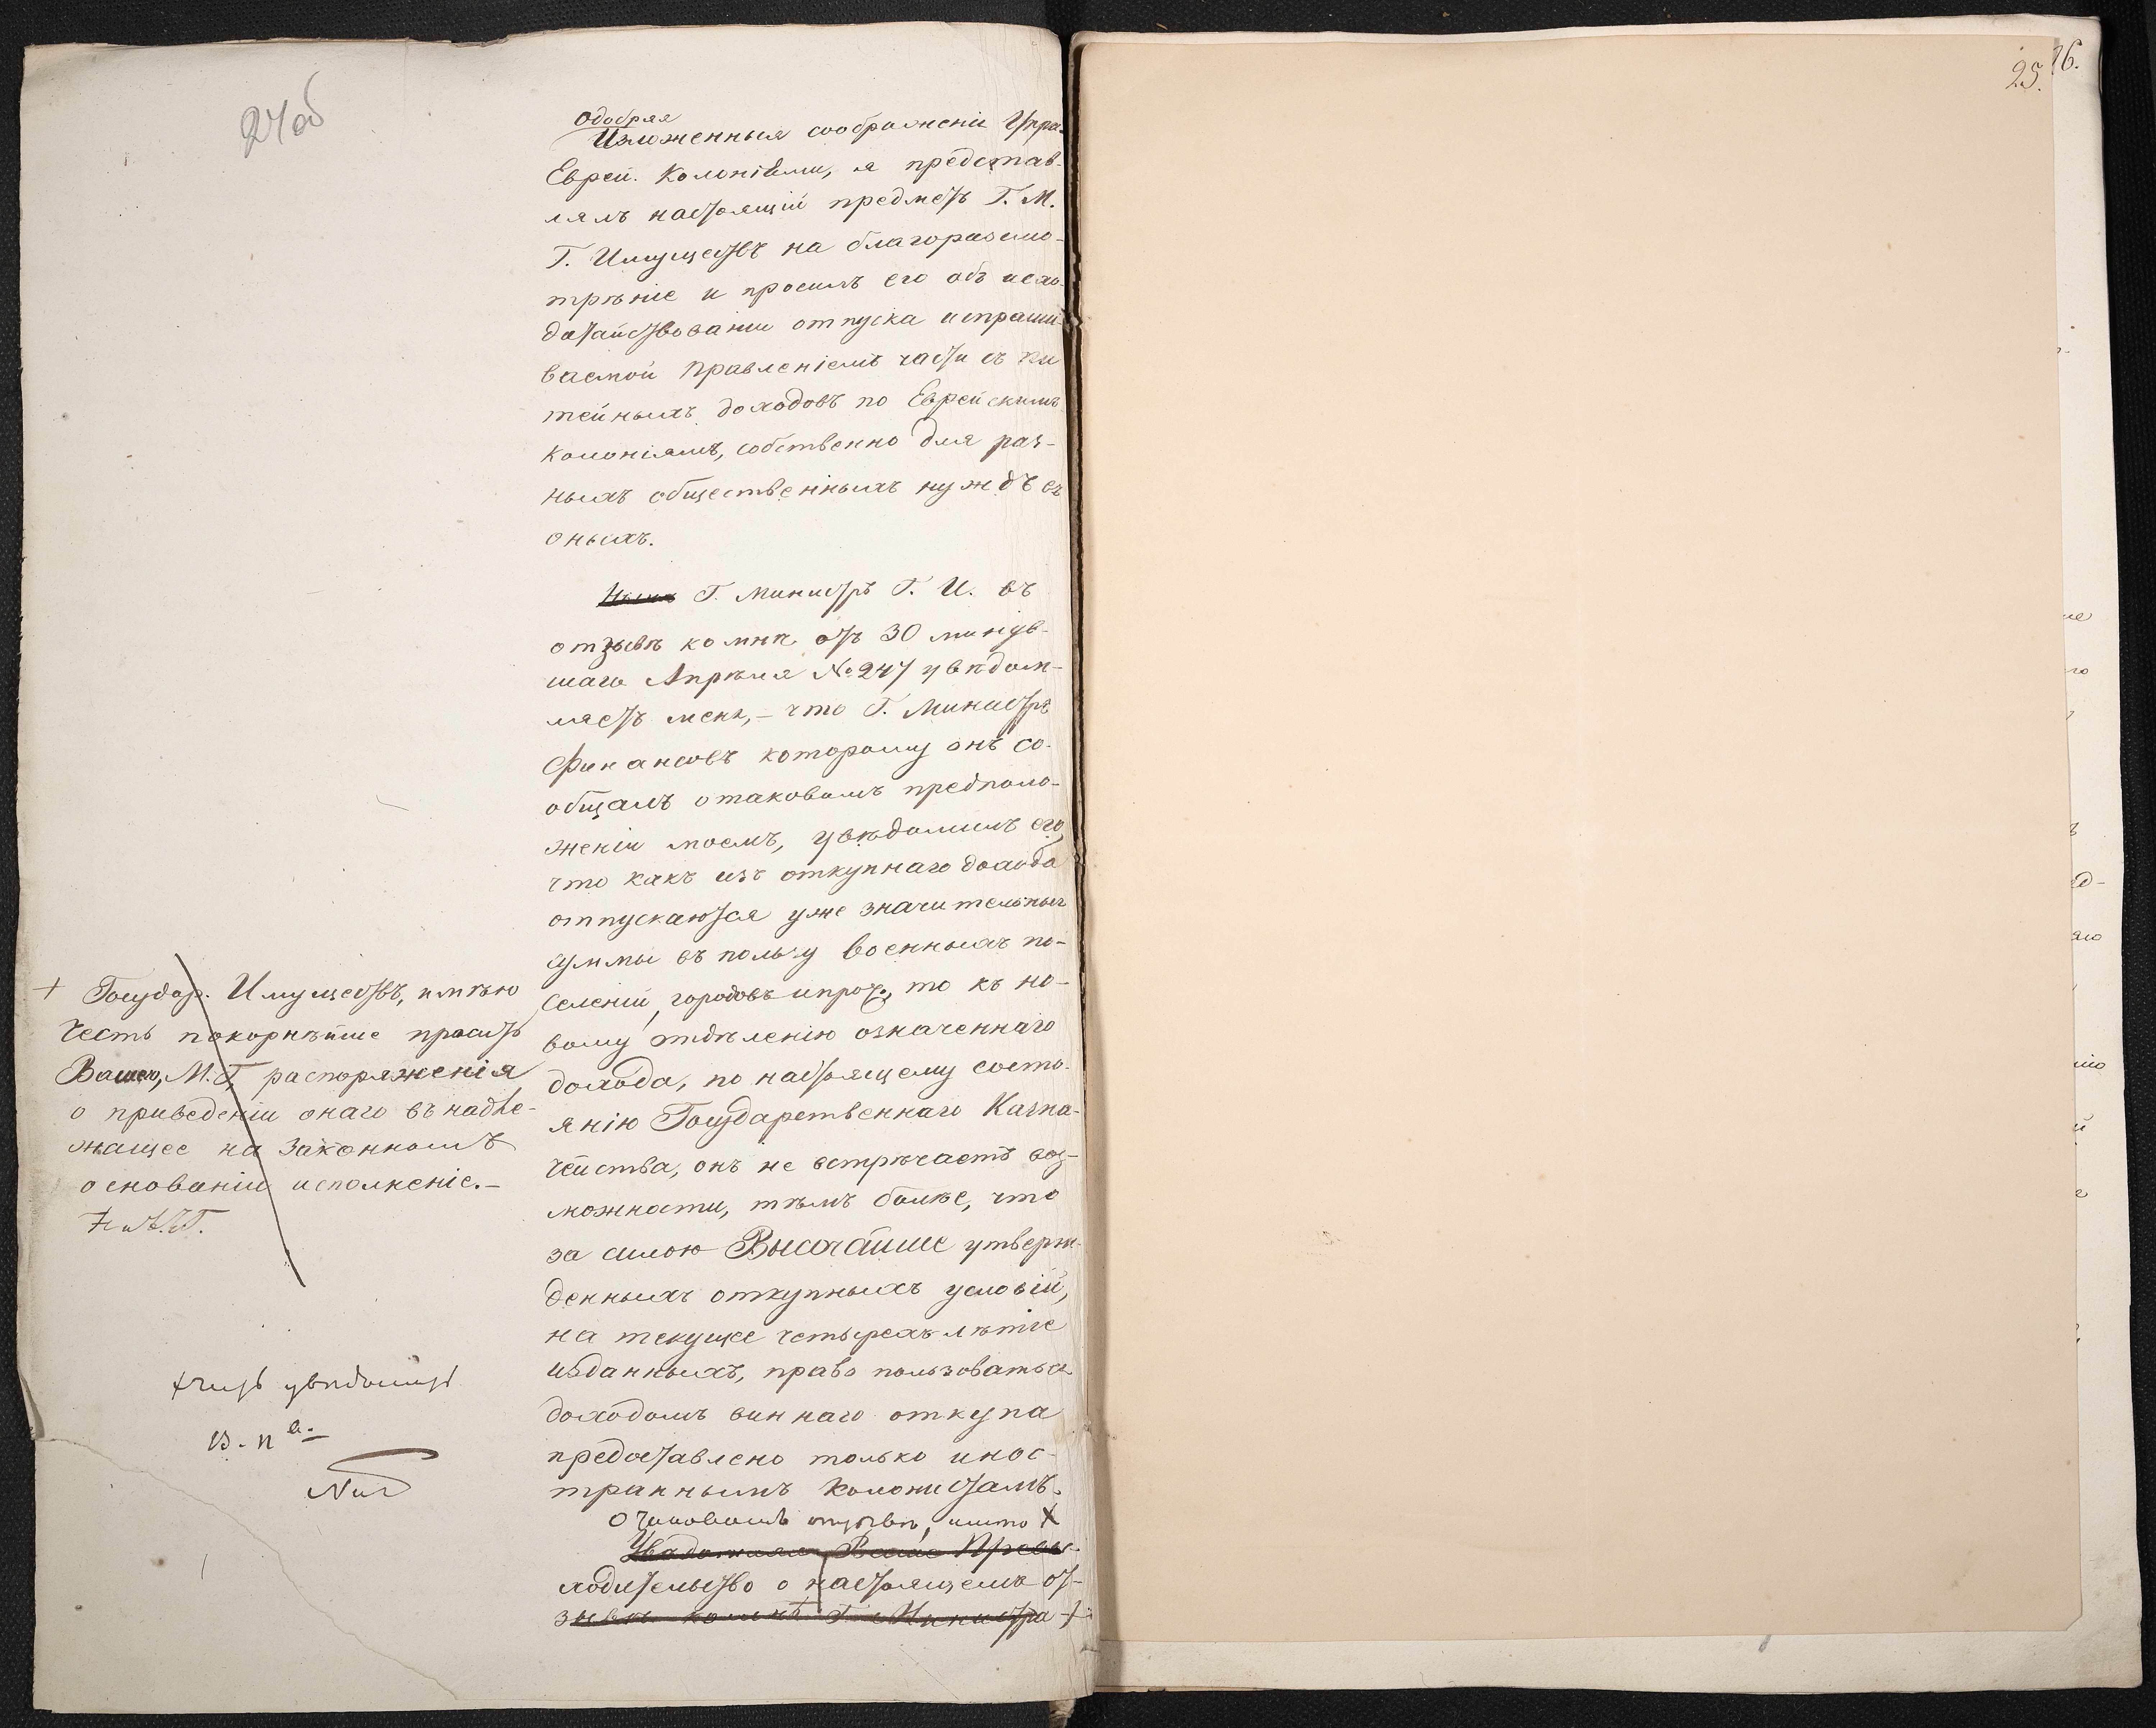 24об
25.
26.
Одобряя
Изложенныя соображенія Упра-
Еврей. Колоніями, я представ-
лялъ настоящій предметъ Г. М.
Г. Имуществъ на благоразсмо-
трѣніе и просилъ его объ исхо-
датайствованіи отпуска испраши-
ваемой Правленіемъ части съ пи
тейныхъ доходовъ по Еврейскимъ
колоніямъ, собственно для раз-
ныхъ общественныхъ нуждъ въ
оныхъ.
Нынѣ Г. Министръ Г. И. въ
отзывѣ ко мнѣ отъ 30 минув-
шаго Апрѣля № 247 увѣдом-
ляетъ меня, - что Г. Министръ
Финансовъ которому онъ со-
общалъ о таковомъ предполо-
женіи моемъ, увѣдомилъ его,
что какъ изъ откупнаго дохода
отпускаются уже значительныя
суммы въ пользу военныхъ по-
селеній, городовъ и проч., то къ но-
вому отдѣленію означеннаго
дохода, по настоящему состо-
янію Государственнаго Казна-
чейства, онъ не встрѣчаетъ воз-
можности, тѣмъ болѣе, что
за силою Высочайше утверж-
денныхъ откупныхъ условій,
на текущее четырехълѣтіе
изданныхъ, право пользоваться
доходомъ виннаго откупа
предоставлено только инос-
траннымъ колонистамъ.
О таковомъ отзывѣ, имѣю +
Увѣдомляя Ваше Превос-
ходительство о настоящемъ от-
зывѣ ко мнѣ Г. Министра +
+ Государ. Имуществъ, имѣю
честь покорнѣйше просить
Вашего, М. Г., распоряженія
о приведеніи онаго въ надле-
жащее на законномъ
основаніи исполненіе. -
+ честь увѣдомить
В. П.